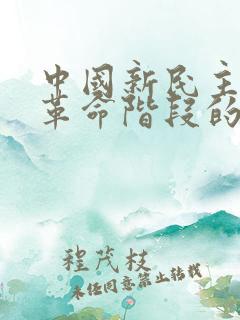 中國新民主
革命階段的
程茂枝
未经同意禁止转载